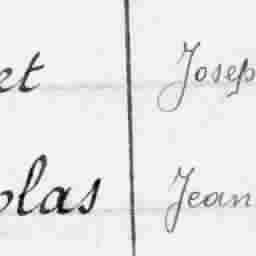 et Josep
olas Jean